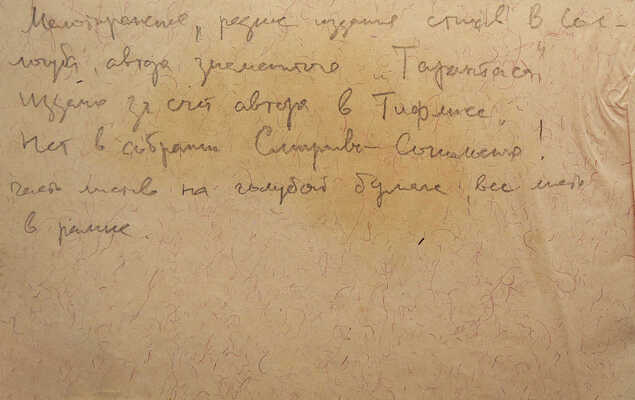 Малотиражное, редкое издание стихов В. Сол-
логуба, автора знаменитого "Тарантаса"
Издано за счет автора в Тифлисе.
Нет в собрании Смирнова-Сокольского!
часть листов на голубой бумаге, все листы
в рамке.